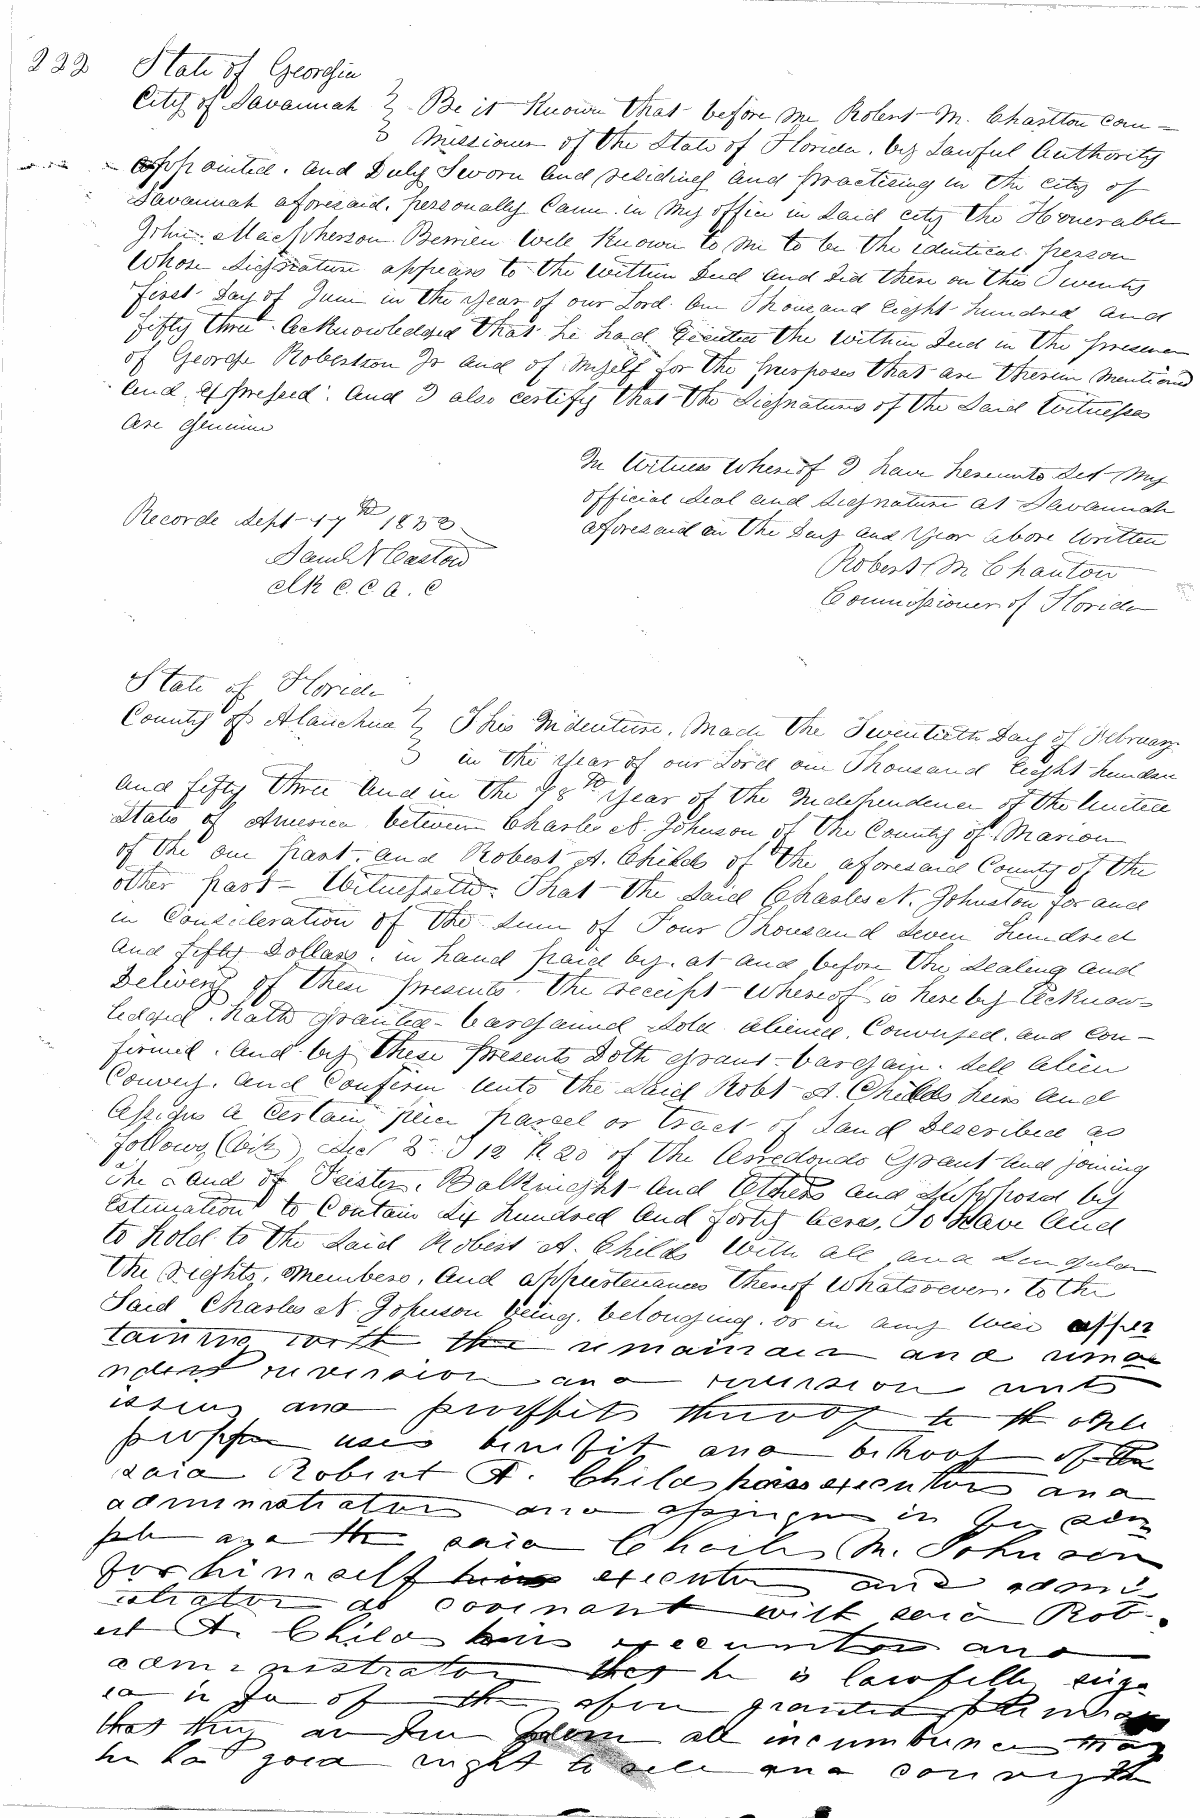 222 State of Georgia
City of Savannah } Be it Known that before me Robert M. Charlton com-
missioner of the State of Florida. by Lawful Authority
appointed. and Duly Sworn and residing and practising in the city of
Savannah aforesaid. personally Came in my office in said city the Honerable
John. MacPherson Berrien well known to me to be the identical person
whose signature appears to the within Deed and did then on this Twenty
first day of June in the year of our Lord one Thousand Eight hundred and
fifty three acknowledged that he had Executed the within Deed in the presence
of George Robertson Jr and of myself for the purposes that are therein mentiond
and expressed: and I also certify that the Signatures of the said Witnesses
are genuine
In Witness whereof I have hereunto set my
official Seal and Signature at Savannah
aforesaid on the Day and year above written
Robert M Charlton
Commissioner of Florida
Recorde Sept 17th 1853
Saml N
clk C. C. A. C
State of Florida
County of Alauchua } This Indenture. Made the Twentieth Day of February
in the year of our Lord one Thousand Eight hundred
and fifty three and in the 78th year of the Independence of the United
States of America between Charles N. Johnson of the County of Marion
of the one part. and Robert A. Childs of the aforesaid County of the
other part - Witnesseth. That the said Charles N. Johnston for and
in Consideration of the sum of Four Thousand Seven hundred
and fifty Dollars. in hand paid by. at and before the sealing and
Delivery of these presents. the receipt whereof is hereby acknow-
ledged. hath granted - bargained sold aliened. Conveyed. and con-
firmed. and by these presents Doth grant - bargain. sell alien
Convey. and Confirm unto the said Robt A. Childs heirs and
Assigns a certain piece parcel or tract of Land Described as
follows (viz) Sec 2 T 12 R 20 of the Arredondo Grant and joining
the Land of Feister. Balknight and Others and supposed by
Estimation to Contain six hundred and forty acres. To Have and
to hold to the said Robert A. Childs with all and singular
the rights. members. and appurtenances thereof whatsoever. to the
Said Charles N. Johnson being. belonging. or in any wise apper
taining with the remainder and rema
nders reversion and reversion rents
issues and proffits thereof to the only
propper uses benefit and behoof of the
said Robert A. Childs executors and
administrators and assigns in fee sim
ple and the said Charles N. Johnson
for himself executors and admi
istrators do covenant with said Rob-
ert A. Childs executors and
administrators that he is lawfully siza
ed in fee of the afore granted premises
that they are free from all incumbrance that
he has good right to sell and convey the